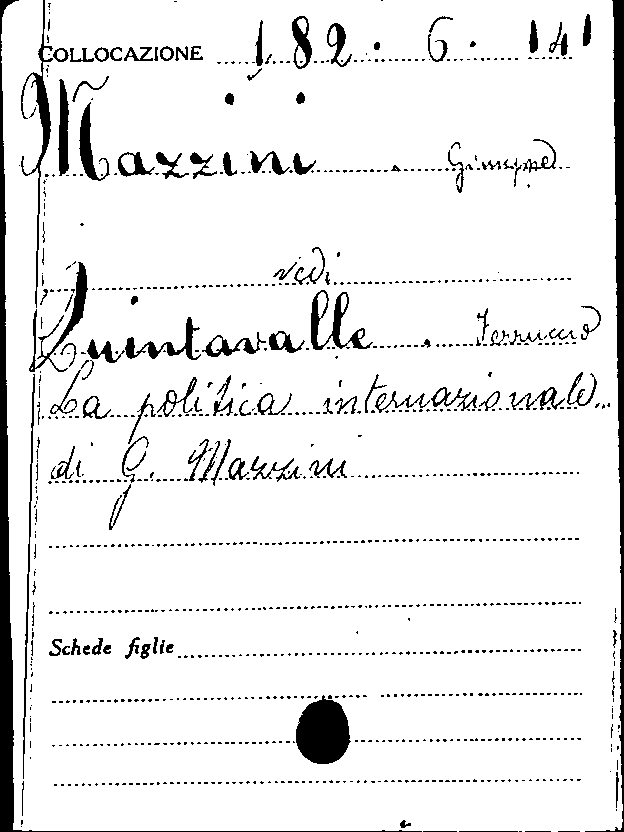 COLLOCAZIONE 182. 6. 141
Mazzini. Giuseppe
vedi
Quintavalle. Ferruccio
La politica internazionale
di G. Mazzini
Schede figlie